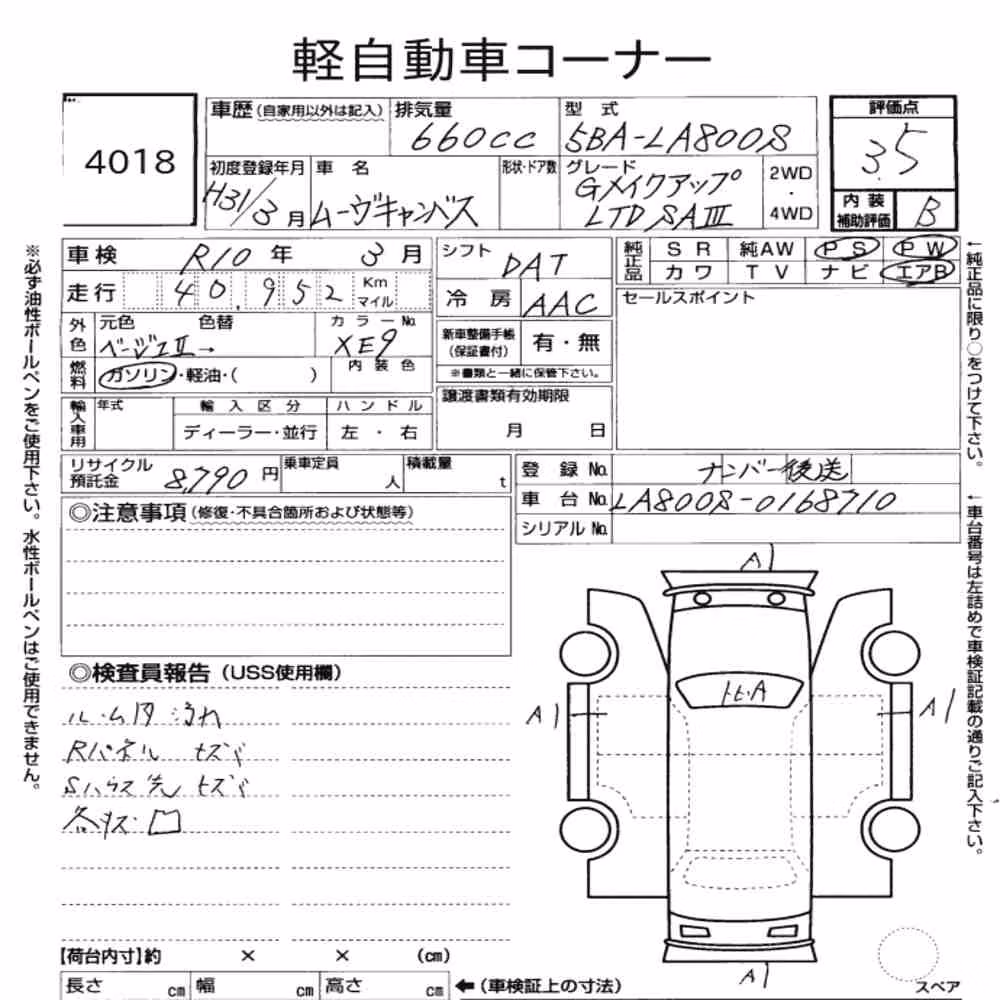 軽自動車コーナー
4018
車歴(自家用以外は記入)
排気量
660cc
型式
5BA-LA800S
評価点
3.5
初度登録年月
H31/3月
車名
ムーヴキャンバス
形状・ドア数
グレード
Gメイクアップ
LTD SAⅢ
2WD
・
4WD
内装
補助評価
B
車検 R10年 3月
シフト
DAT
純正品
SR 純AW PS PW
カワ TV ナビ エアB
走行 40,952 Km
マイル
冷房 AAC
セールスポイント
外色
元色 色替 カラーNo.
ベージュⅡ→ XE9
新車整備手帳
(保証書付)
有・無
※書類と一緒に保管下さい。
燃料
ガソリン・軽油・( )
内装色
輸入車用
年式 輸入区分 ハンドル
ディーラー・並行 左・右
譲渡書類有効期限
月 日
リサイクル
預託金 8,790円
乗車定員
人
積載量
t
登録No. ナンバー後送
車台No. LA800S-0168710
シリアルNo.
◎注意事項(修復・不具合箇所および状態等)
◎検査員報告(USS使用欄)
ルーム内 汚れ
Rパネル キズ
各キズ
A1
A1
A1
A1
【荷台内寸】約 × × (cm)
長さ cm 幅 cm 高さ cm
←(車検証上の寸法)
スペア
※必ず油性ボールペンをご使用下さい。水性ボールペンはご使用できません。
←純正品に限り○をつけて下さい。
←車台番号は左詰めで車検証記載の通りご記入下さい。